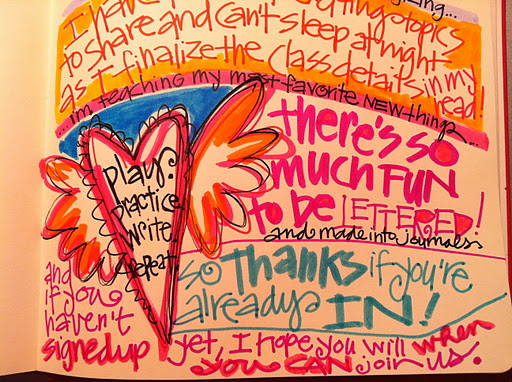 I have topics
to share and can't sleep at night
as I finalize the class details in my
head!
...i'm teaching my most favorite NEW things...
play.
practice
write.
repeat
there's so
much FUN
to be LETTERED!
and made into journals
so THANKS if you're
already IN!
and
if you
haven't
signed up yet, I hope you will when
you CAN join us.